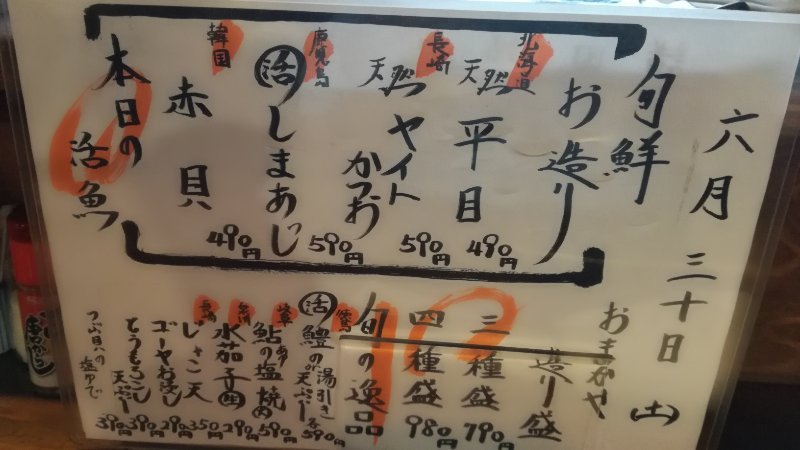 六月三十日(土)
旬鮮
お造り
北海道
天然 平目
490円
長崎
天然 ヤイトかつお
590円
鹿児島
活 しまあじ
590円
韓国
赤貝
490円
本日の活魚
おまかせ
造り盛
三種盛
790円
四種盛
980円
旬の逸品
徳島
活 鱧の湯引き
天ぷら
590円
岐阜
鮎の塩焼
590円
水茄子
290円
長崎
じゃこ天
350円
ゴーヤお浸し
290円
とうもろこし天ぷら
390円
つぶ貝の塩ゆで
390円